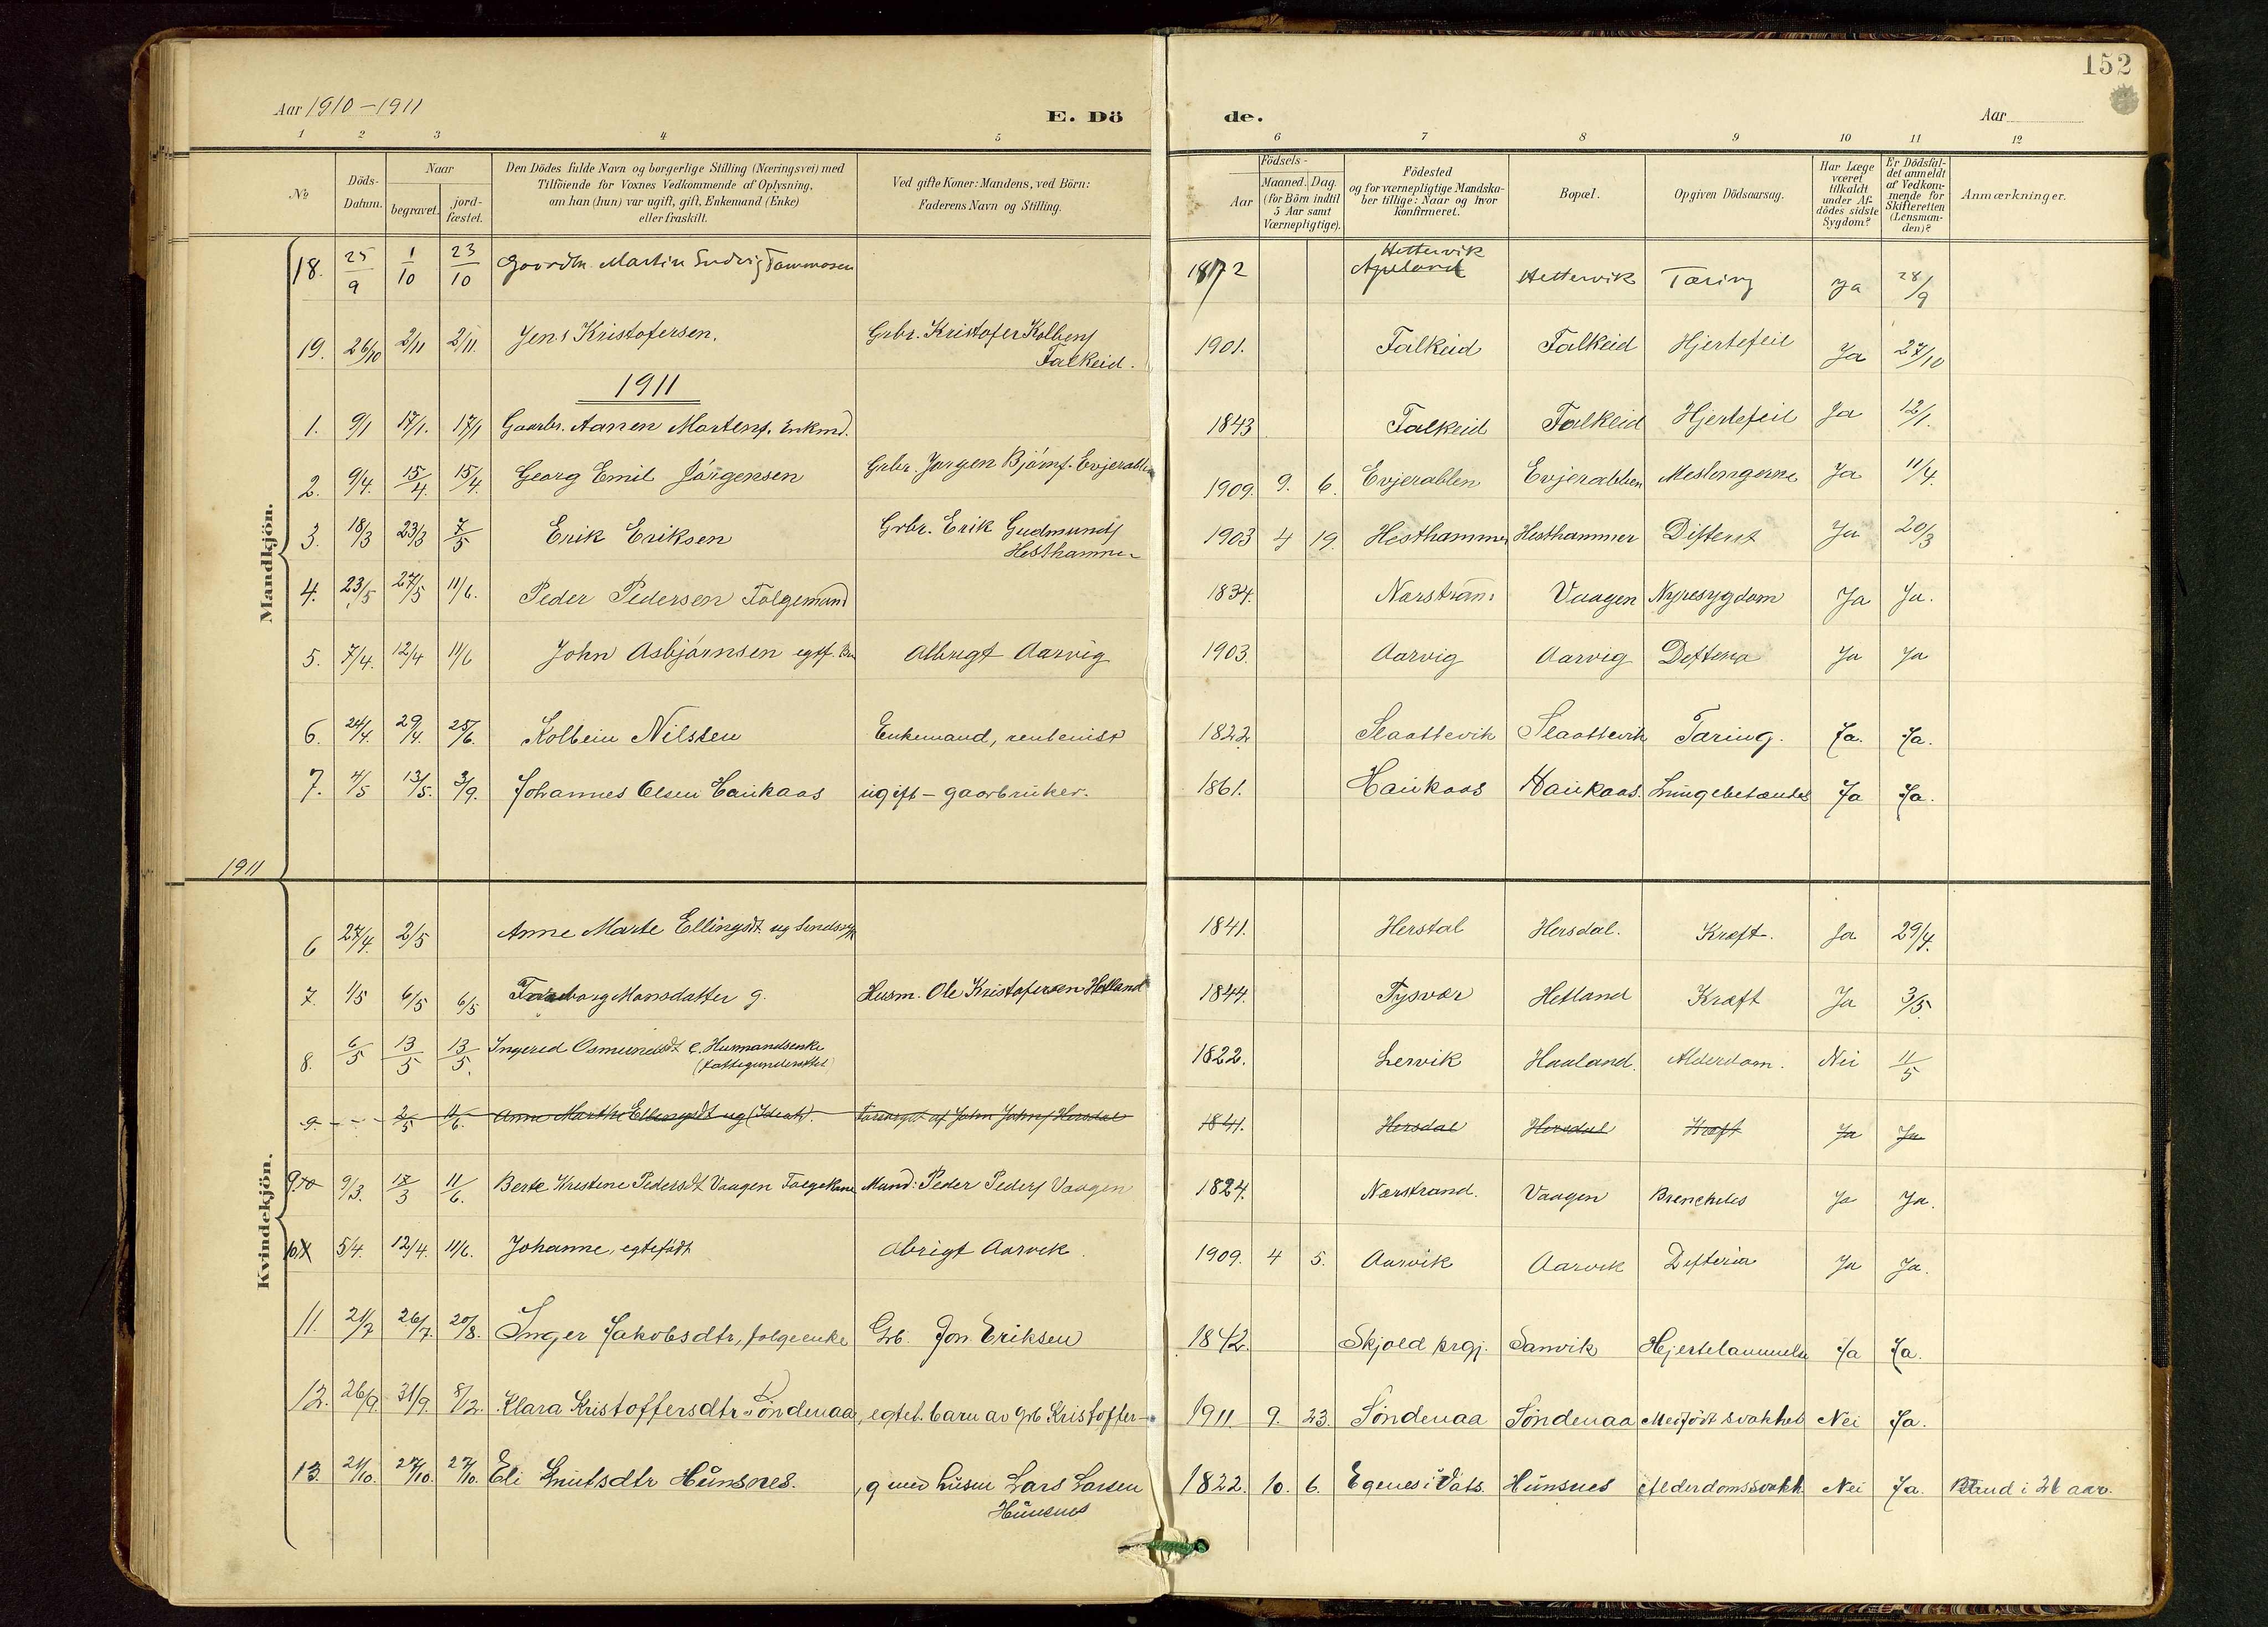 152
Aar 1910-1911
E. Dö
de.
Aar
1 2 3 4 5 6 7 8 9 10 11 12
No
Döds-Datum.
Naar
begravet.
jord-fæstet.
Den Dödes fulde Navn og borgerlige Stilling (Næringsvei) med
Tilföiende for Voxnes Vedkommende af Oplysning,
om han (hun) var ugift, gift, Enkemand (Enke)
eller fraskilt.
Ved gifte Koner: Mandens, ved Börn:
Faderens Navn og Stilling.
Födsels-
Aar
Maaned. Dag.
(for Börn indtil
5 Aar samt
Værnepligtige).
Födested
og for værnepligtige Mandska-
ber tillige: Naar og hvor
Konfirmeret.
Bopæl.
Opgiven Dödsaarsag.
Har Læge
været
tilkaldt
under Af-
dödes sidste
Sygdom?
Er Dödsfal-
det anmeldt
af Vedkom-
mende for
Skifteretten
(Lensman-
den)?
Anmærkninger.
Mandkjön.
18. 25/9 1/10 23/10 Martin 1872 Hettervik Hettervik Tæring Ja 28/9
19. 26/10 2/11 2/11. Jens Kristofersen. Grbr. Kristofer Kolbens Falkeid. 1901. Falkeid Falkeid Hjertefeil Ja 27/10
1911
1. 9/1 17/1. 17/1 Gaarbr. Aanen Martens. Enkmd. 1843 Falkeid Falkeid Hjertefeil Ja 12/1.
2. 9/4. 15/4. 15/4. Georg Emil Jörgensen Grbr. Jørgen Bjöms. 1909. 9. 6. Evjerablen Evjerabben Meslingerne Ja 11/4.
3. 18/3 23/3 7/5 Erik Eriksen Grbr. Erik Gudmunds Hesthammer 1903 4 19. Hesthammer Hesthammer Ja 20/3
4. 23/5 27/5 11/6. Peder Pedersen Folgemand 1834. Vaagen Nyresygdom Ja Ja.
5. 7/4. 12/4 11/6 John Asbjörnsen egtf. Albrigt Aarvig 1903. Aarvig Aarvig Ja Ja
6. 24/4. 29/4. 25/6. Kolbein Nilssen Enkemand, rentenist 1822 Slaattevik Slaattevik Tæring. Ja. Ja.
7. 4/5 13/5. 3/9. Johannes Olsen Haukaas ugift - gaarbruker. 1861. Haukaas Haukaas. Ja Ja.
1911
Kvindekjön.
6 27/4. 2/5 Anne Marte Ellingsdt. ug 1841. Herstal Hersdal. Kræft. Ja 29/4.
7. 1/5 6/5 6/5 Mansdatter g. Husm. Ole Kristofersen Hetland 1844. Tysvær Hetland Kræft Ja 3/5.
8. 6/5 13/5 13/5. Ingered Osmundsdt e. Husmandsenke 1822. Lervik Haaland. Alderdom. Nei 11/5
9. - - - 2/5 11/6. Anne Marthe Ellingsdt ug (Idiot). Forsørget af John Johns Hersdal 1841. Hersdal Hersdal Kræft Ja Ja
9. 10 9/3. 17/3 11/6. Berte Kristine Pedersdt Vaagen Folgekone Mand: Peder Peders Vaagen 1824. Nærstrand. Vaagen Ja Ja.
10. 5/4. 12/4. 11/6. Johanne, egtefödt Abrigt Aarvik. 1909. 4 5. Aarvik Aarvik Difteria Ja Ja.
11. 21/7 26/7. 20/8. Inger Jakobsdtr, folgeenke Grb. Jon Eriksen 1842. Skjold prgj. Sanvik Hjertelammelse Ja Ja.
12. 26/9. 31/9. 8/12. Klara Kristoffersdtr Söndenaa, egtef. barn av grb Kristoffer 1911. 9. 23. Söndenaa Söndenaa Medfödt svakhet Nei Ja.
13. 21/10. 27/10. 27/10. Eli Knutsdtr Hünsnes. , g med husm Lars Larsen Hünsnes 1822. 10. 6. Egenes i Vats. Hünsnes Alderdomssvakh Nei Ja. Blind i 26 aar.